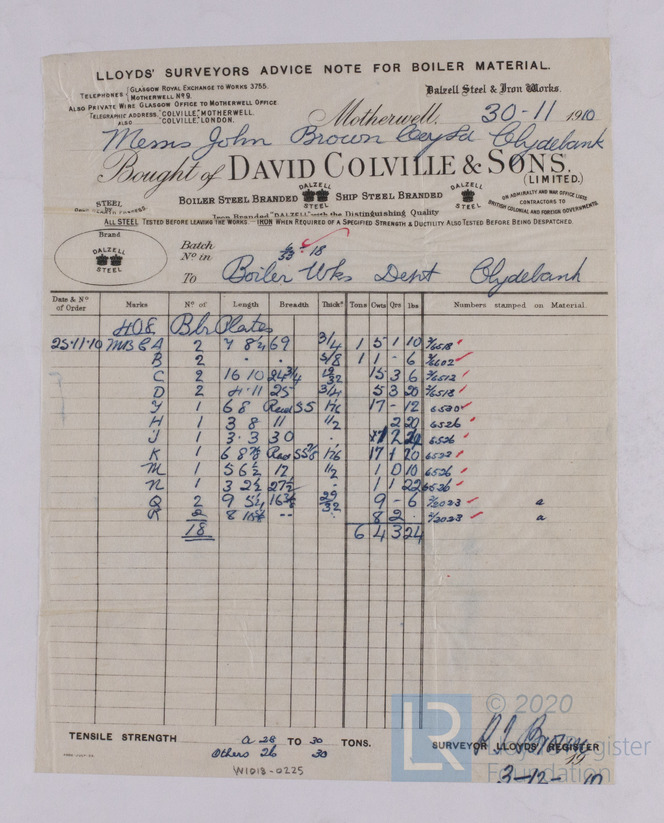 LLOYDS' SURVEYORS ADVICE NOTE FOR BOILER MATERIAL.
TELEPHONES { GLASGOW ROYAL EXCHANGE TO WORKS 3755.
MOTHERWELL Nº 9.
ALSO PRIVATE WIRE GLASGOW OFFICE TO MOTHERWELL OFFICE.
TELEGRAPHIC ADDRESS, "COLVILLE," MOTHERWELL.
ALSO "COLVILLE," LONDON.
Dalzell Steel & Iron Works.
Motherwell, 30-11 1910
Messrs John Brown Coy Ld Clydebank
Bought of DAVID COLVILLE & SONS,
(LIMITED.)
STEEL
BOILER STEEL BRANDED DALZELL STEEL SHIP STEEL BRANDED DALZELL STEEL
ON ADMIRALTY AND WAR OFFICE LISTS
CONTRACTORS TO
BRITISH COLONIAL AND FOREIGN GOVERNMENTS.
Iron Branded "DALZELL" with the Distinguishing Quality
ALL STEEL TESTED BEFORE LEAVING THE WORKS. IRON WHEN REQUIRED OF A SPECIFIED STRENGTH & DUCTILITY ALSO TESTED BEFORE BEING DESPATCHED.
Brand
DALZELL STEEL
Batch
Nº in 18
To Boiler Wks Dept Clydebank
Date & Nº of Order Marks Nº of Length Breadth Thickˢ Tons Cwts Qrs lbs Numbers stamped on Material.
Blr Plates
25-11-10 A 2 7 8½ 69 3/4 1 5 1 10
B 2 . . 5/8 1 1 - 6
C 2 16 10 24¾ 19/32 15 3 6
D 2 4.11 25 3/4 5 3 20
Y 1 6 8 55 17 - 12 6520
H 1 3 8 11 1/2 2 20 6526
J 1 3.3 30 . 6526
K 1 17 1 20
M 1 5 6½ 12 1/2 1 0 10 6526
N 1 3 2½ 27½ . 1 1 22 6526
Q 2 9 5¼ 29/32 9 - 6 a
R 2 8 -- . 8 2 . a
18 6 4 3 24
TENSILE STRENGTH a 28 TO 30 TONS.
Others 26 30
SURVEYOR LLOYDS' REGISTER
3-12-10
W1018-0225
© 2020
LR
Lloyd's Register
Foundation